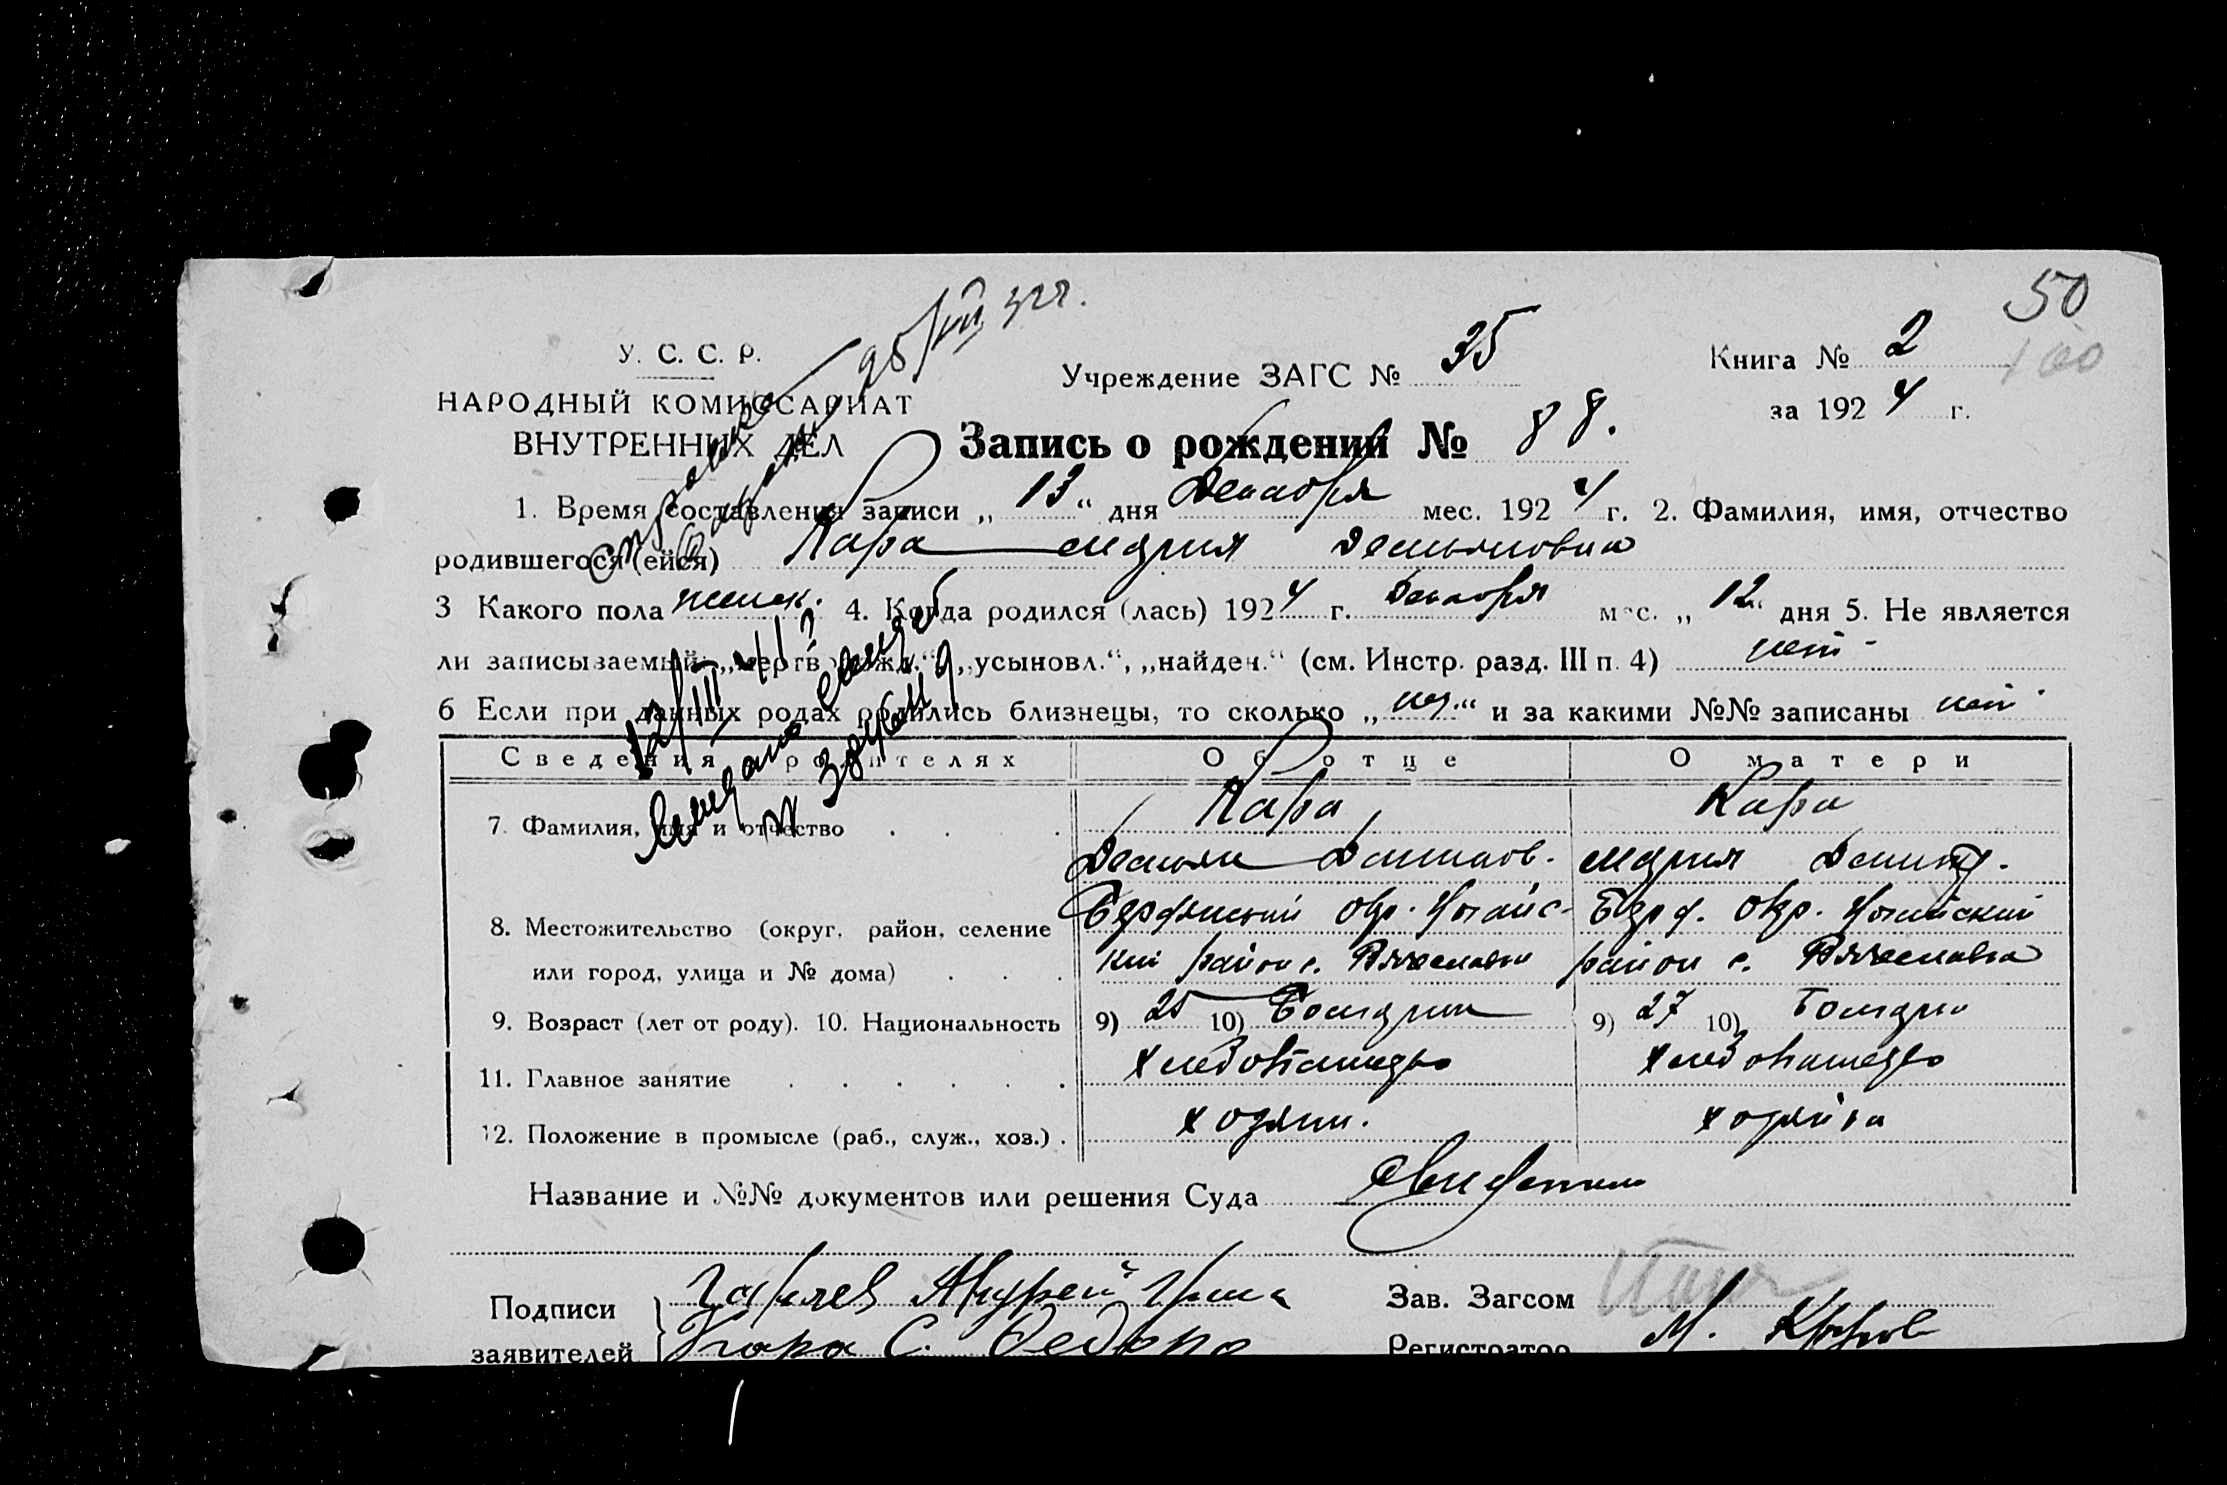 50
100
У. С. С. Р.
НАРОДНЫЙ КОМИССАРИАТ
ВНУТРЕННИХ ДЕЛ
Учреждение ЗАГС № 35
Книга № 2
за 1924 г.
Запись о рождении № 88.
1. Время составления записи „13“ дня Декабря мес. 1924 г. 2. Фамилия, имя, отчество
родившегося (ейся) Кара Мария Демьяновна
3 Какого пола женск. 4. Когда родился (лась) 1924 г. Декабря мес. „12“ дня 5. Не является
ли записываемый „мертворожд.“, „усыновл.“, „найден.“ (см. Инстр. разд. III п. 4) нет
6 Если при данных родах родились близнецы, то сколько „нет“ и за какими №№ записаны нет
Сведения о родителях Об отце О матери
7. Фамилия, имя и отчество Кара Кара
Демьян Мария
8. Местожительство (округ, район, селение Бердянский окр. Ногайс- Берд. Окр. Ногайский
или город, улица и № дома) кий район с. Вячеславка район с. Вячеславка
9. Возраст (лет от роду). 10. Национальность 9) 25 10) Болгарин 9) 27 10) Болгарка
11. Главное занятие хлебопашество хлебопашество
12. Положение в промысле (раб., служ., хоз.) хозяин. хозяйка
Название и №№ документов или решения Суда
Подписи
заявителей
Андрей
Кара С.
Зав. Загсом
Регистратор М.